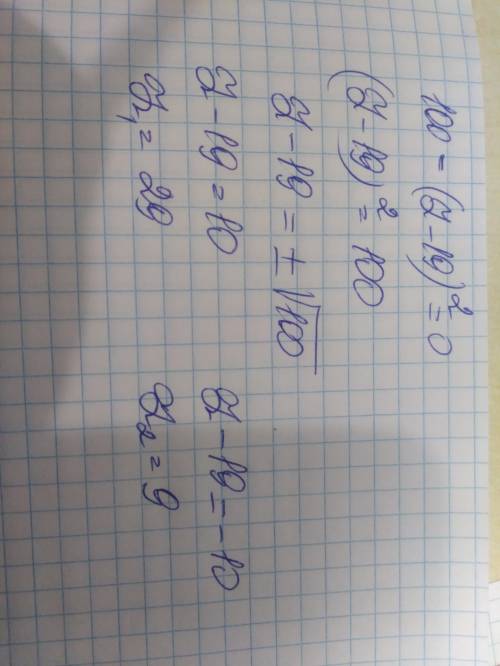 100 - (y - 19)² = 0
(y - 19)² = 100
y - 19 = ± √100
y - 19 = 10 y - 19 = -10
y₁ = 29 y₂ = 9